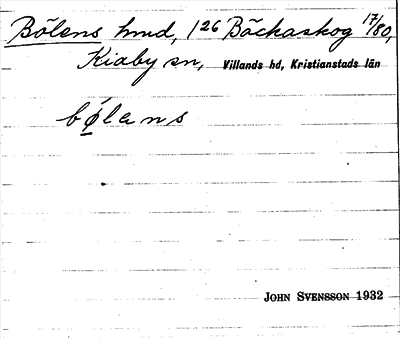 Bölens hmd, 126 Bäckaskog 17/80,
Kiaby sn, Villands hd, Kristianstads län
bø̄lans
JOHN SVENSSON 1932